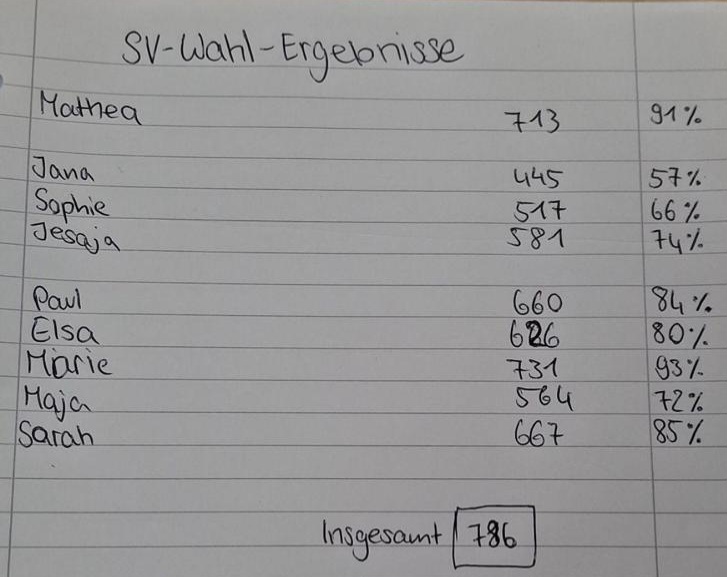 SV-Wahl-Ergebnisse
Mathea 713 91%
Jana 445 57%
Sophie 517 66%
Jesaja 581 74%
Paul 660 84%
Elsa 626 80%
Marie 731 93%
Maja 564 72%
Sarah 667 85%
Insgesamt 786